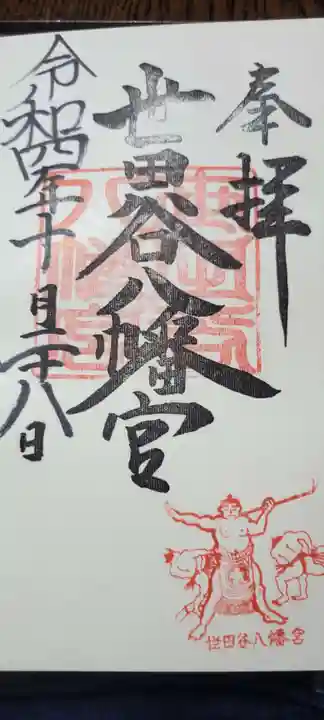 奉拝
世田谷八幡宮
令和四年十月二十八日
世田谷八幡宮